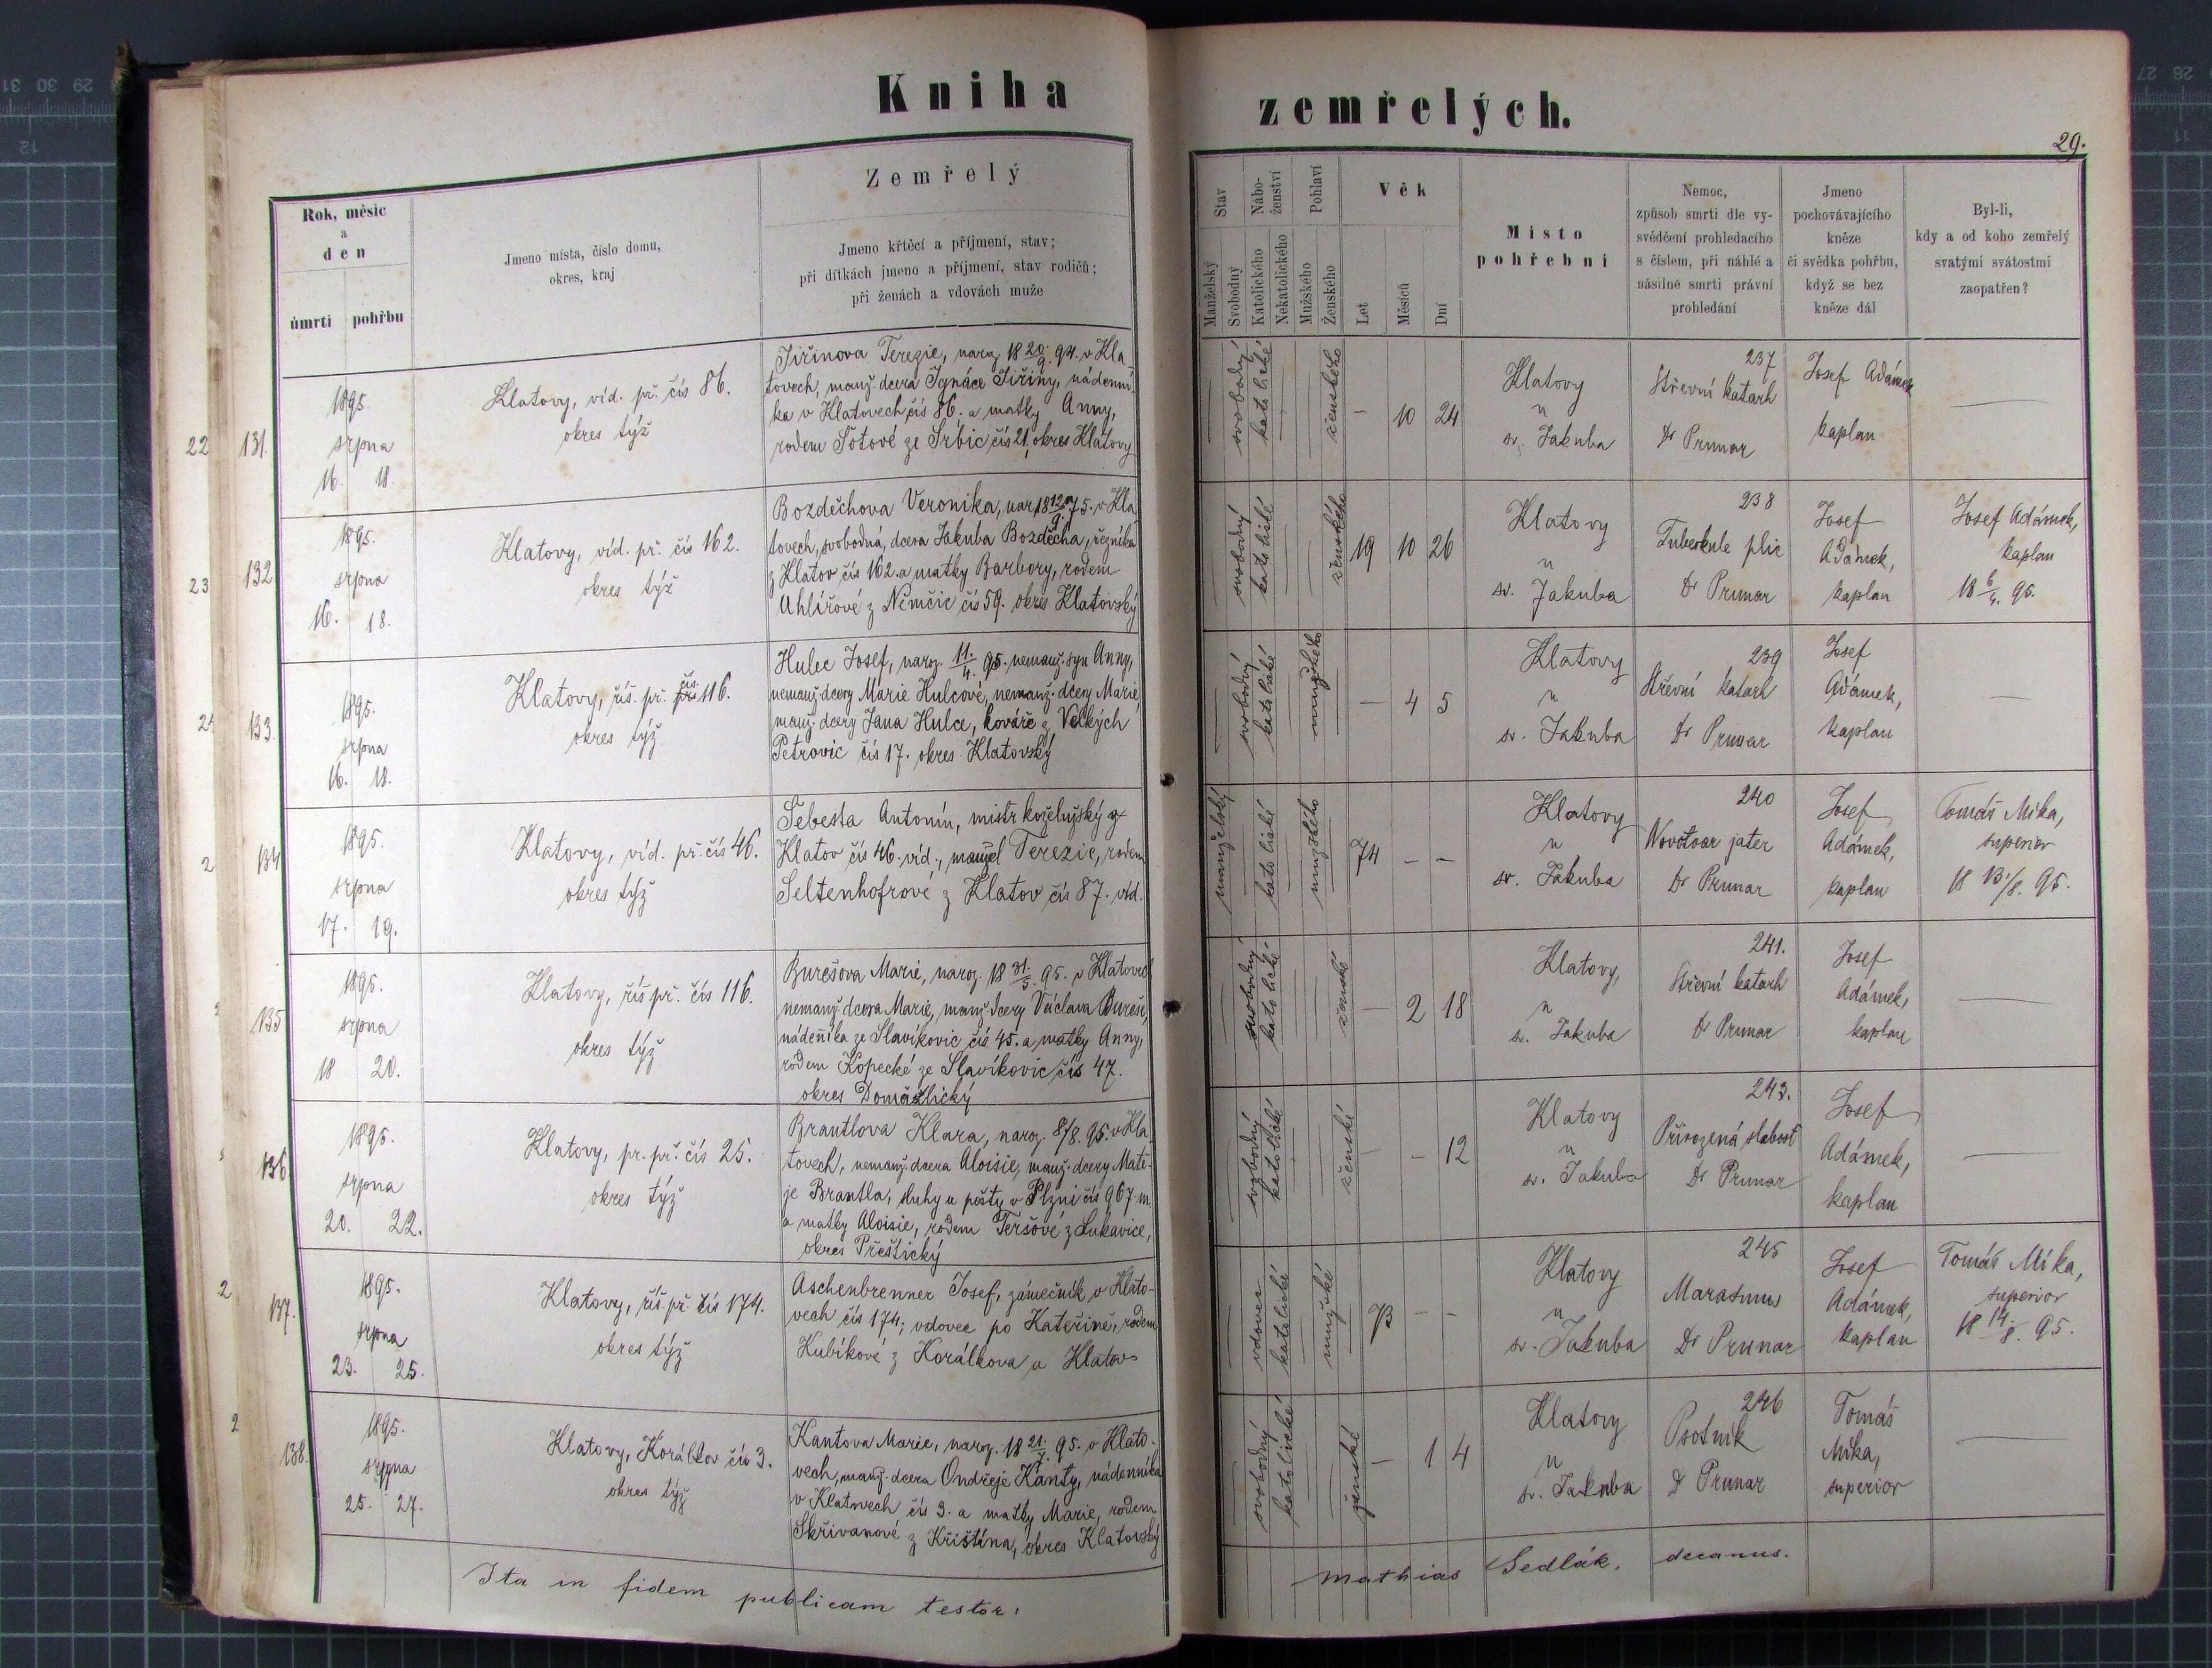 Kniha zemřelých.
29.
Rok, měsíc
a
den
úmrtí pohřbu
Jmeno místa, číslo domu,
okres, kraj
Zemřelý
Jmeno křtěcí a příjmení, stav;
při dítkách jmeno a příjmení, stav rodičů;
při ženách a vdovách muže
Stav
Manželský
Svobodný
Nábo-
ženství
Katolického
Nekatolického
Pohlaví
Mužského
Ženského
Věk
Let
Měsíců
Dní
Místo
pohřební
Nemoc,
způsob smrti dle vy-
svědčení prohledacího
s číslem, při náhlé a
násilné smrti právní
prohledání
Jmeno
pochovávajícího
kněze
či svědka pohřbu,
když se bez
kněze dál
Byl-li,
kdy a od koho zemřelý
svatými svátostmi
zaopatřen?
22 131.
1895.
srpna
16. 18.
Klatovy, víd. př. čís 86.
okres týž
Jiřinova Terezie, naroz. 18 20./9. 94. v Kla-
tovech, manž. dcera Ignáce Jiřiny, nádenní-
ka v Klatovech čís 86. a matky Anny,
rodem Šotové ze Srbic čís 21, okres Klatovy
— svobodný katolické — — ženského
— 10 24
Klatovy
u
sv. Jakuba
237
Střevní katarh
Dr Prunar
Josef Adámek
kaplan
—
23 132
1895.
srpna
16. 18.
Klatovy, víd. př. čís 162.
okres týž
Bozděchova Veronika, nar. 18 12./9. 75. v Kla-
tovech, svobodná, dcera Jakuba Bozděcha, řezníka
z Klatov čís 162. a matky Barbory, rodem
Uhlířové z Němčic čís 59. okres Klatovský
— svobodný katolické — — ženského
19 10 26
Klatovy
u
sv. Jakuba
238
Tuberkule plic
Dr Prunar
Josef
Adámek,
kaplan
Josef Adámek,
kaplan
18 6/4. 95.
133.
1895.
srpna
16. 18.
Klatovy, říš. př. čís. 116.
okres týž
Hulec Josef, naroz. 11./4. 95. nemanž. syn Anny,
nemanž. dcery Marie Hulcové, nemanž. dcery Marie,
manž. dcery Jana Hulce, kováře z Velkých
Petrovic čís 17. okres Klatovský
— svobodný katolické — mužského —
— 4 5
Klatovy
u
sv. Jakuba
239
Střevní katarh
Dr Prunar
Josef
Adámek,
kaplan
—
134
1895.
srpna
17. 19.
Klatovy, víd. př. čís 46.
okres týž
Šebesta Antonín, mistr koželužský z
Klatov čís 46. víd., manžel Terezie, rodem
Seltenhofrové z Klatov čís 87. víd.
manželský — katolické — mužského —
74 — —
Klatovy
u
sv. Jakuba
240
Novotvar jater
Dr Prunar
Josef
Adámek,
kaplan
Tomáš Míka,
superior
18 13/8. 95.
135
1895.
srpna
18 20.
Klatovy, říš př. čís 116.
okres týž
Burešova Marie, naroz. 18 31./5. 95. v Klatovech
nemanž. dcera Marie, manž. dcery Václava Bureše,
nádeníka ze Slavíkovic čís 45. a matky Anny,
rodem Kopecké ze Slavíkovic čís 47.
okres Domažlický
— svobodný katolické — — ženské
— 2 18
Klatovy,
u
sv. Jakuba
241.
Střevní katarh
Dr Prunar
Josef
Adámek,
kaplan
—
136
1895.
srpna
20. 22.
Klatovy, pr. př. čís 25.
okres týž
Brantlova Klara, naroz. 8/8. 95. v Kla-
tovech, nemanž. dcera Aloisie, manž. dcery Matě-
je Brantla, sluhy u pošty v Plzni čís 967. m.
a matky Aloisie, rodem Teršové z Lukavice,
okres Přeštický
— svobodný katolické — — ženské
— — 12
Klatovy
u
sv. Jakuba
243.
Přirozená slabost
Dr Prunar
Josef
Adámek,
kaplan
—
137.
1895.
srpna
23. 25.
Klatovy, říš. př. čís 174.
okres týž
Aschenbrenner Josef, zámečník v Klato-
vech čís 174; vdovec po Kateřině, rodem
Kubíkové z Korálkova u Klatov
— vdovec katolické — mužské —
73 — —
Klatovy
u
sv. Jakuba
245
Marasmus
Dr Prunar
Josef
Adámek,
kaplan
Tomáš Míka,
superior
18 14./8. 95.
138.
1895.
srpna
25. 27.
Klatovy, Korálkov čís 3.
okres týž
Kantova Marie, naroz. 18 21./7. 95. v Klato-
vech, manž. dcera Ondřeje Kanty, nádenníka
v Klatovech čís 3. a matky Marie, rodem
Skřivanové z Křištína, okres Klatovský
— svobodný katolické — — ženské
— 1 4
Klatovy
u
sv. Jakuba
246
Psotník
Dr Prunar
Tomáš
Míka,
superior
—
Ita in fidem publicam testor: Mathias Sedlák. decanus.